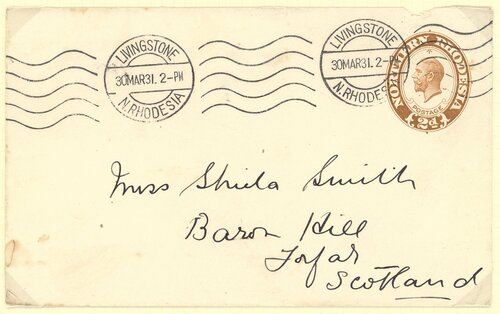 LIVINGSTONE
30MAR31.2-PM
N.RHODESIA
LIVINGSTONE
30MAR31.2-PM
N.RHODESIA
NORTHERN RHODESIA
POSTAGE
2d.
Miss Sheila Smith
Baron Hill
Forfar
Scotland